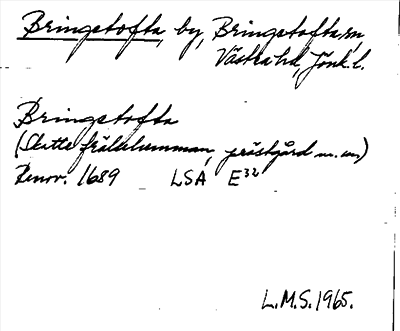 Bringstofta, by, Bringstofta sn,
Västra hd, Jönk. l.
Bringstofta
(Skatte frälsehemman, prästgård m. m)
Renov. 1689 LSA E32
L.M.S. 1965.